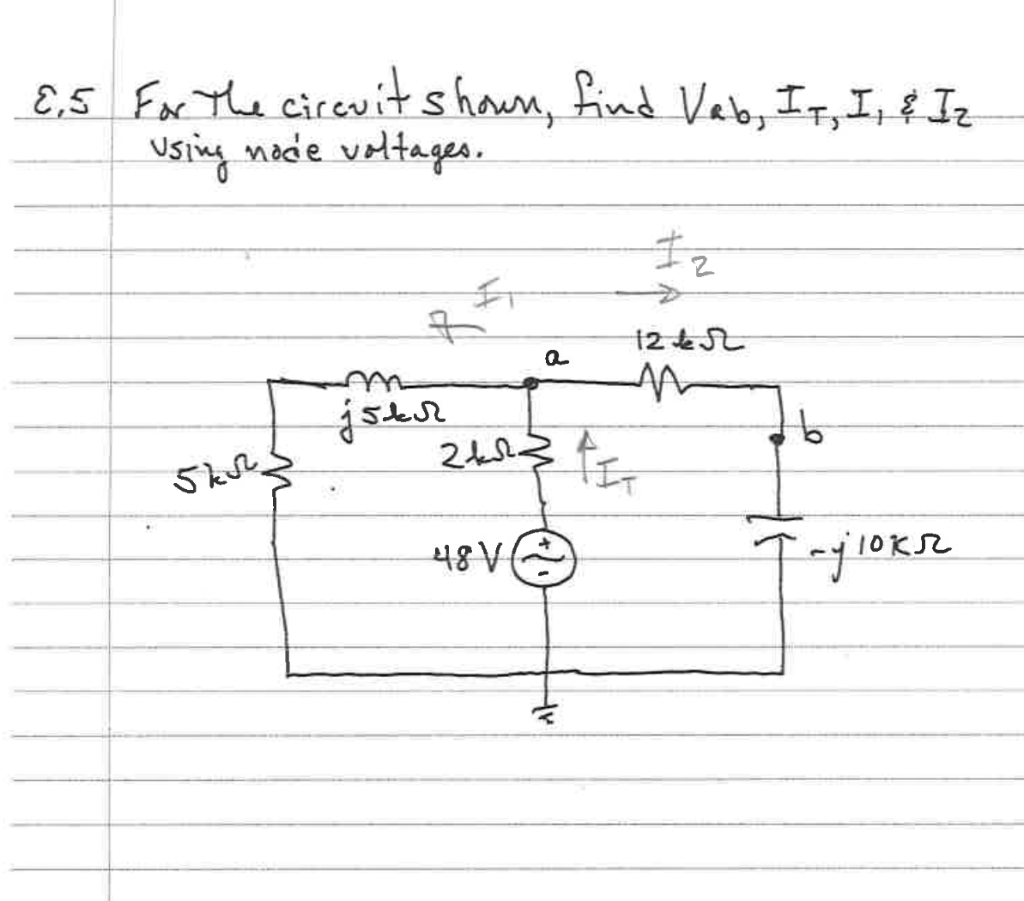 E.5 For The circuit shown, find Vab, I_T, I_1 & I_2
using node voltages.
I_2
I_1
12 kΩ
a
j5kΩ
b
2kΩ
I_T
5kΩ
48V
+
-
-j10KΩ